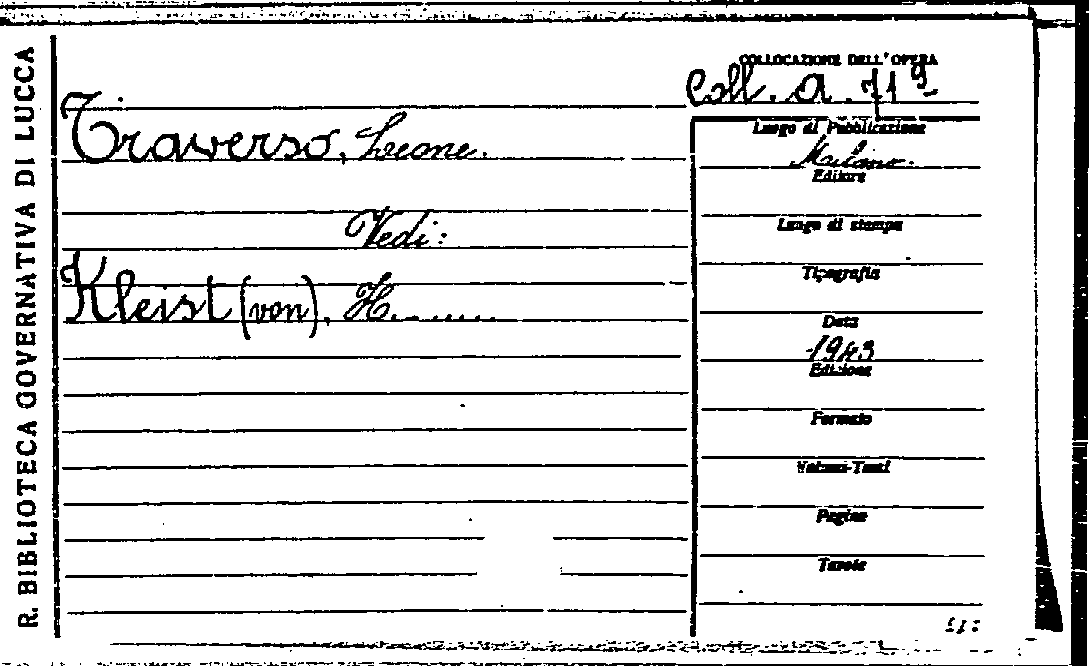 R. BIBLIOTECA GOVERNATIVA DI LUCCA
COLLOCAZIONE DELL'OPERA
Coll. A. 71
Traverso, Leone.
Vedi:
Kleist (von), H........
Luogo di Pubblicazione
Milano.
Editore
Luogo di stampa
Tipografia
Data
1943
Edizione
Formato
Volumi-Tomi
Pagine
Tavole